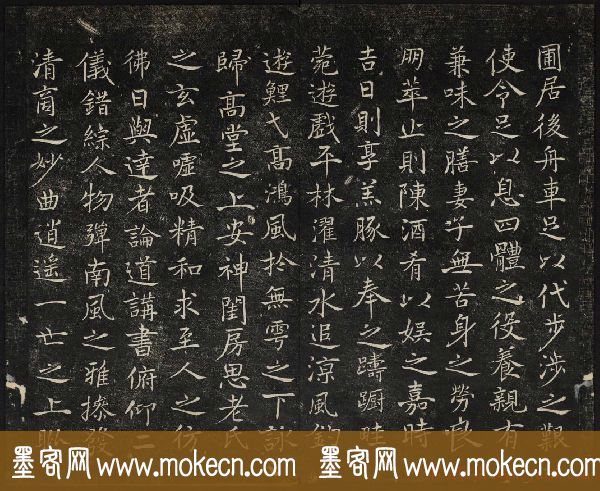 圃居後舟車足以代步涉之艱
使令足以息四體之役養親有
兼味之膳妻子無苦身之勞良
朋萃止則陳酒肴以娛之嘉時
吉日則亨羔豚以奉之躊躕畦
菀遊戲平林濯清水追涼風釣
遊鯉弋高鴻風於無雩之下詠
歸高堂之上安神閨房思老氏
之玄虛噓吸精和求至人之彷
佛日與達者論道講書俯仰二
儀錯綜人物彈南風之雅操發
清商之妙曲逍遙一世之上睥
墨客网 www.mokecn.com 墨客网 www.mokecn.com